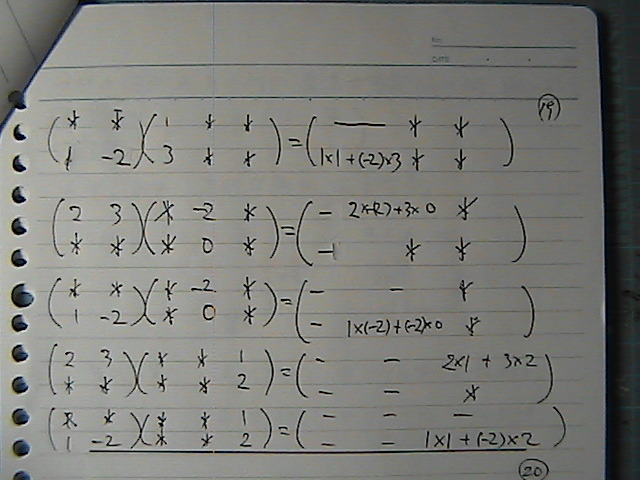 No.
DATE . .
19
( * * ) ( 1 * * ) = ( — * * )
( 1 -2 ) ( 3 * * ) = ( 1×1+(-2)×3 * * )
( 2 3 ) ( * -2 * ) = ( - 2×(-2)+3×0 * )
( * * ) ( * 0 * ) = ( - * * )
( * * ) ( * -2 * ) = ( - - * )
( 1 -2 ) ( * 0 * ) = ( - 1×(-2)+(-2)×0 * )
( 2 3 ) ( * * 1 ) = ( - - 2×1 + 3×2 )
( * * ) ( * * 2 ) = ( - - * )
( * * ) ( * * 1 ) = ( - - - )
( 1 -2 ) ( * * 2 ) = ( - - 1×1+(-2)×2 )
20